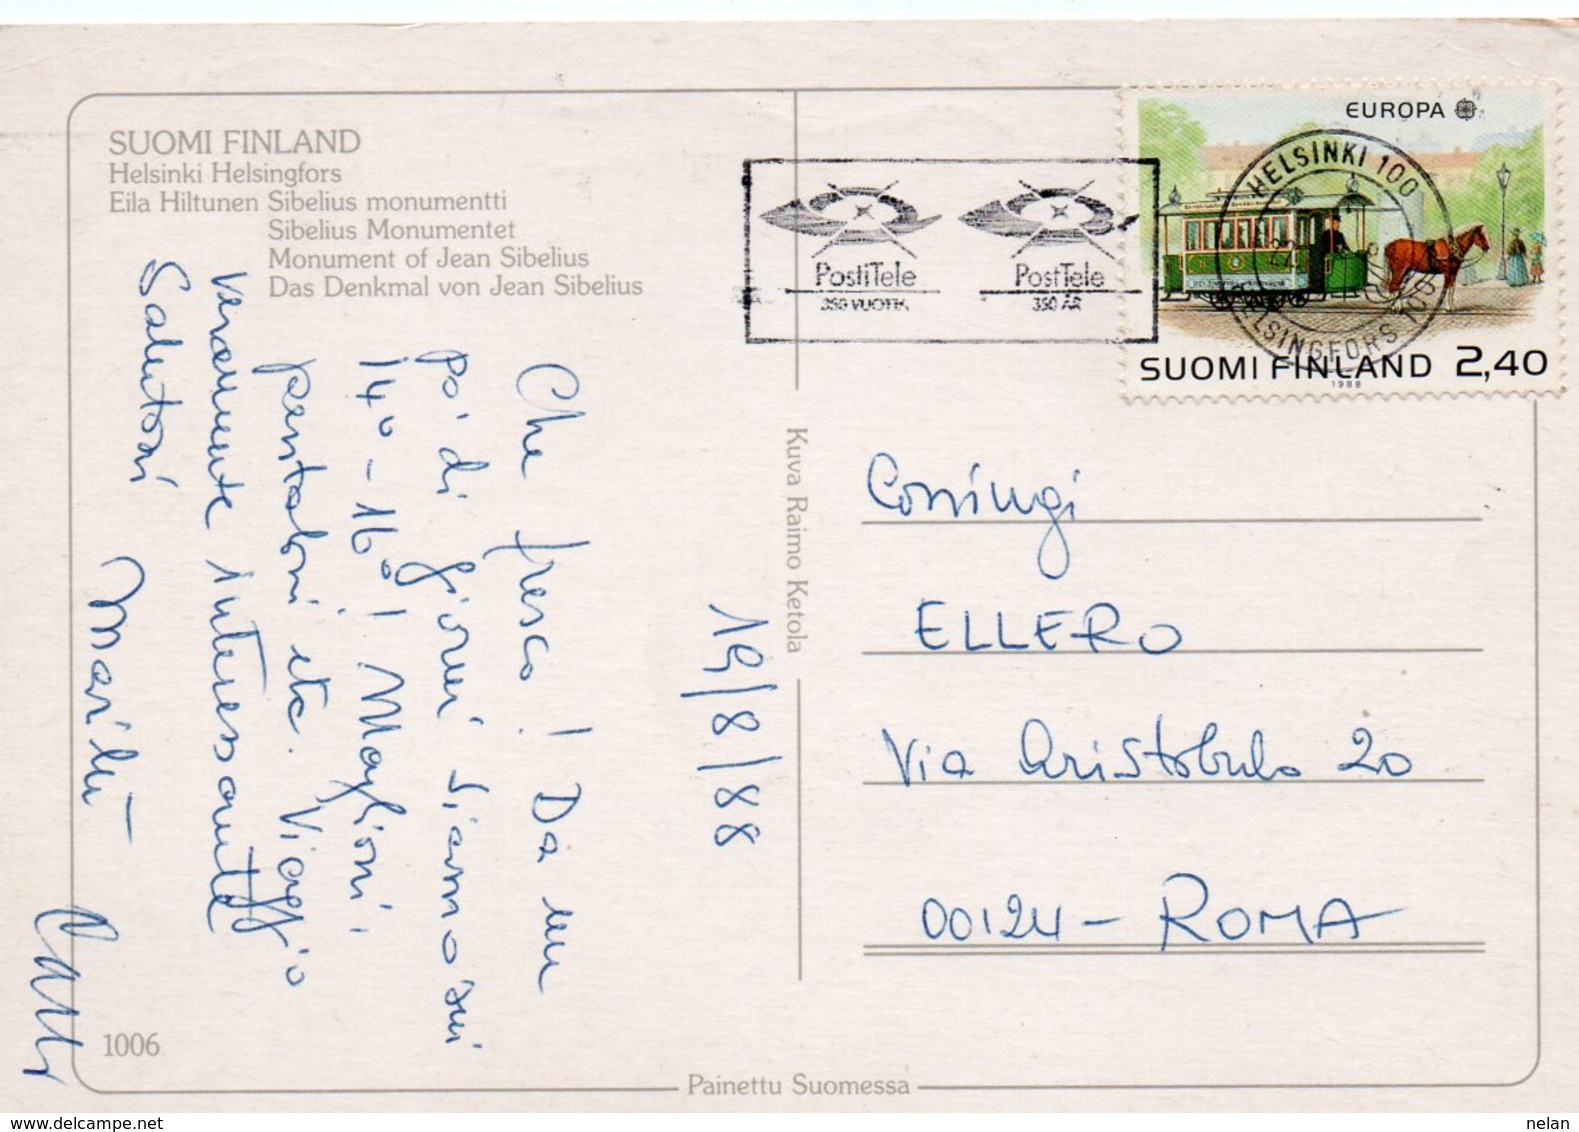 SUOMI FINLAND
Helsinki Helsingfors
Eila Hiltunen Sibelius monumentti
Sibelius Monumentet
Monument of Jean Sibelius
Das Denkmal von Jean Sibelius
PostiTele
350 VUOTTA
PostTele
350 ÅR
EUROPA
HELSINKI 100
HELSINGFORS 100
SUOMI FINLAND 2,40
1988
19/8/88
Che fresco! Da un
po' di giorni siamo sui
14° - 16°! Maglioni,
pantaloni etc. Viaggio
veramente interessante
Salutoni
Marilù -
Kuva Raimo Ketola
Coniugi
ELLERO
Via Aristobulo 20
00124 - ROMA
1006
Painettu Suomessa
delcampe.net
nelan